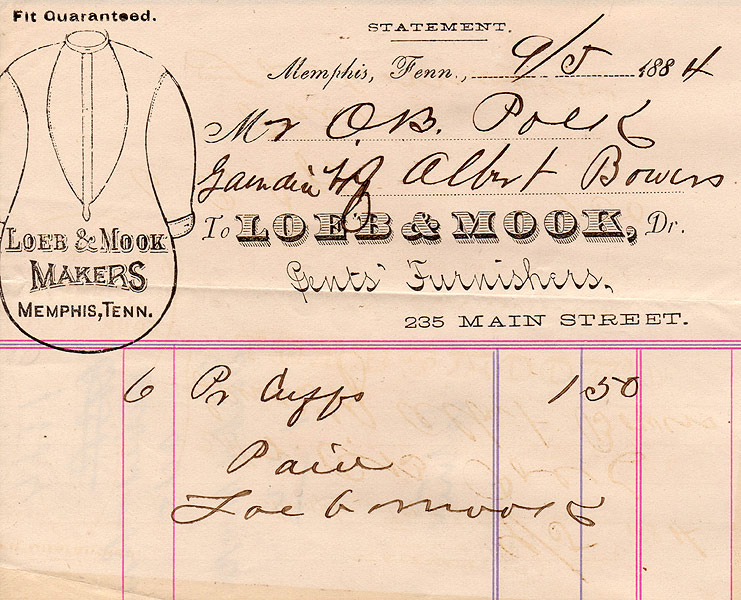 Fit Guaranteed.
STATEMENT.
Memphis, Tenn., 9/5 1884
Mr O.B. Polk
Albert Bowers
To LOEB & MOOK, Dr.
Gents' Furnishers,
235 MAIN STREET.
LOEB & MOOK
MAKERS
MEMPHIS, TENN.
6 Pr Cuffs 1 50
Paid
Loeb & Mook